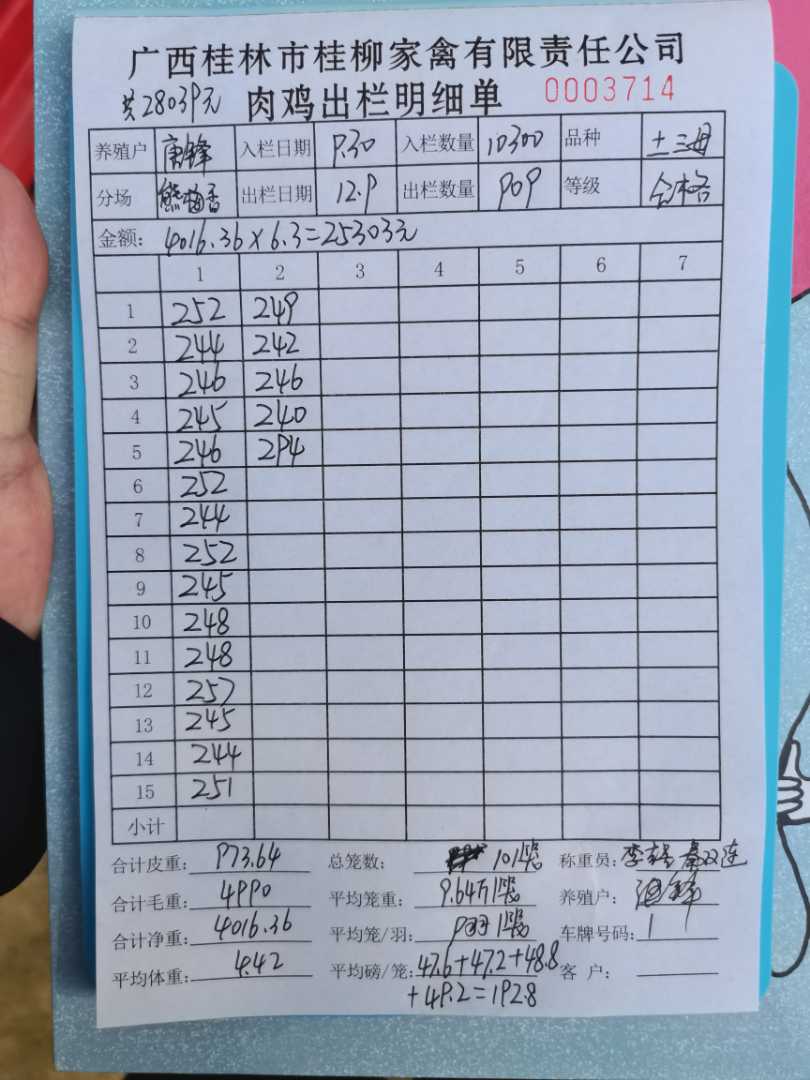 广西桂林市桂柳家禽有限责任公司
共28039元 肉鸡出栏明细单 0003714
养殖户 唐锋 入栏日期 9.30 入栏数量 10300 品种 土三母
分场 熊梅香 出栏日期 12.9 出栏数量 909 等级 合格
金额： 4016.36×6.3=25303元
1 2 3 4 5 6 7
1 252 249
2 244 242
3 246 246
4 245 240
5 246 294
6 252
7 244
8 252
9 245
10 248
11 248
12 257
13 245
14 244
15 251
小计
合计皮重： 973.64 总笼数： 101笼 称重员： 李
合计毛重： 4990 平均笼重： 9.64斤/笼 养殖户： 唐锋
合计净重： 4016.36 平均笼/羽： 9羽/笼 车牌号码： 1
平均体重： 4.42 平均磅/笼： 47.6+47.2+48.8 客 户：
+49.2=192.8